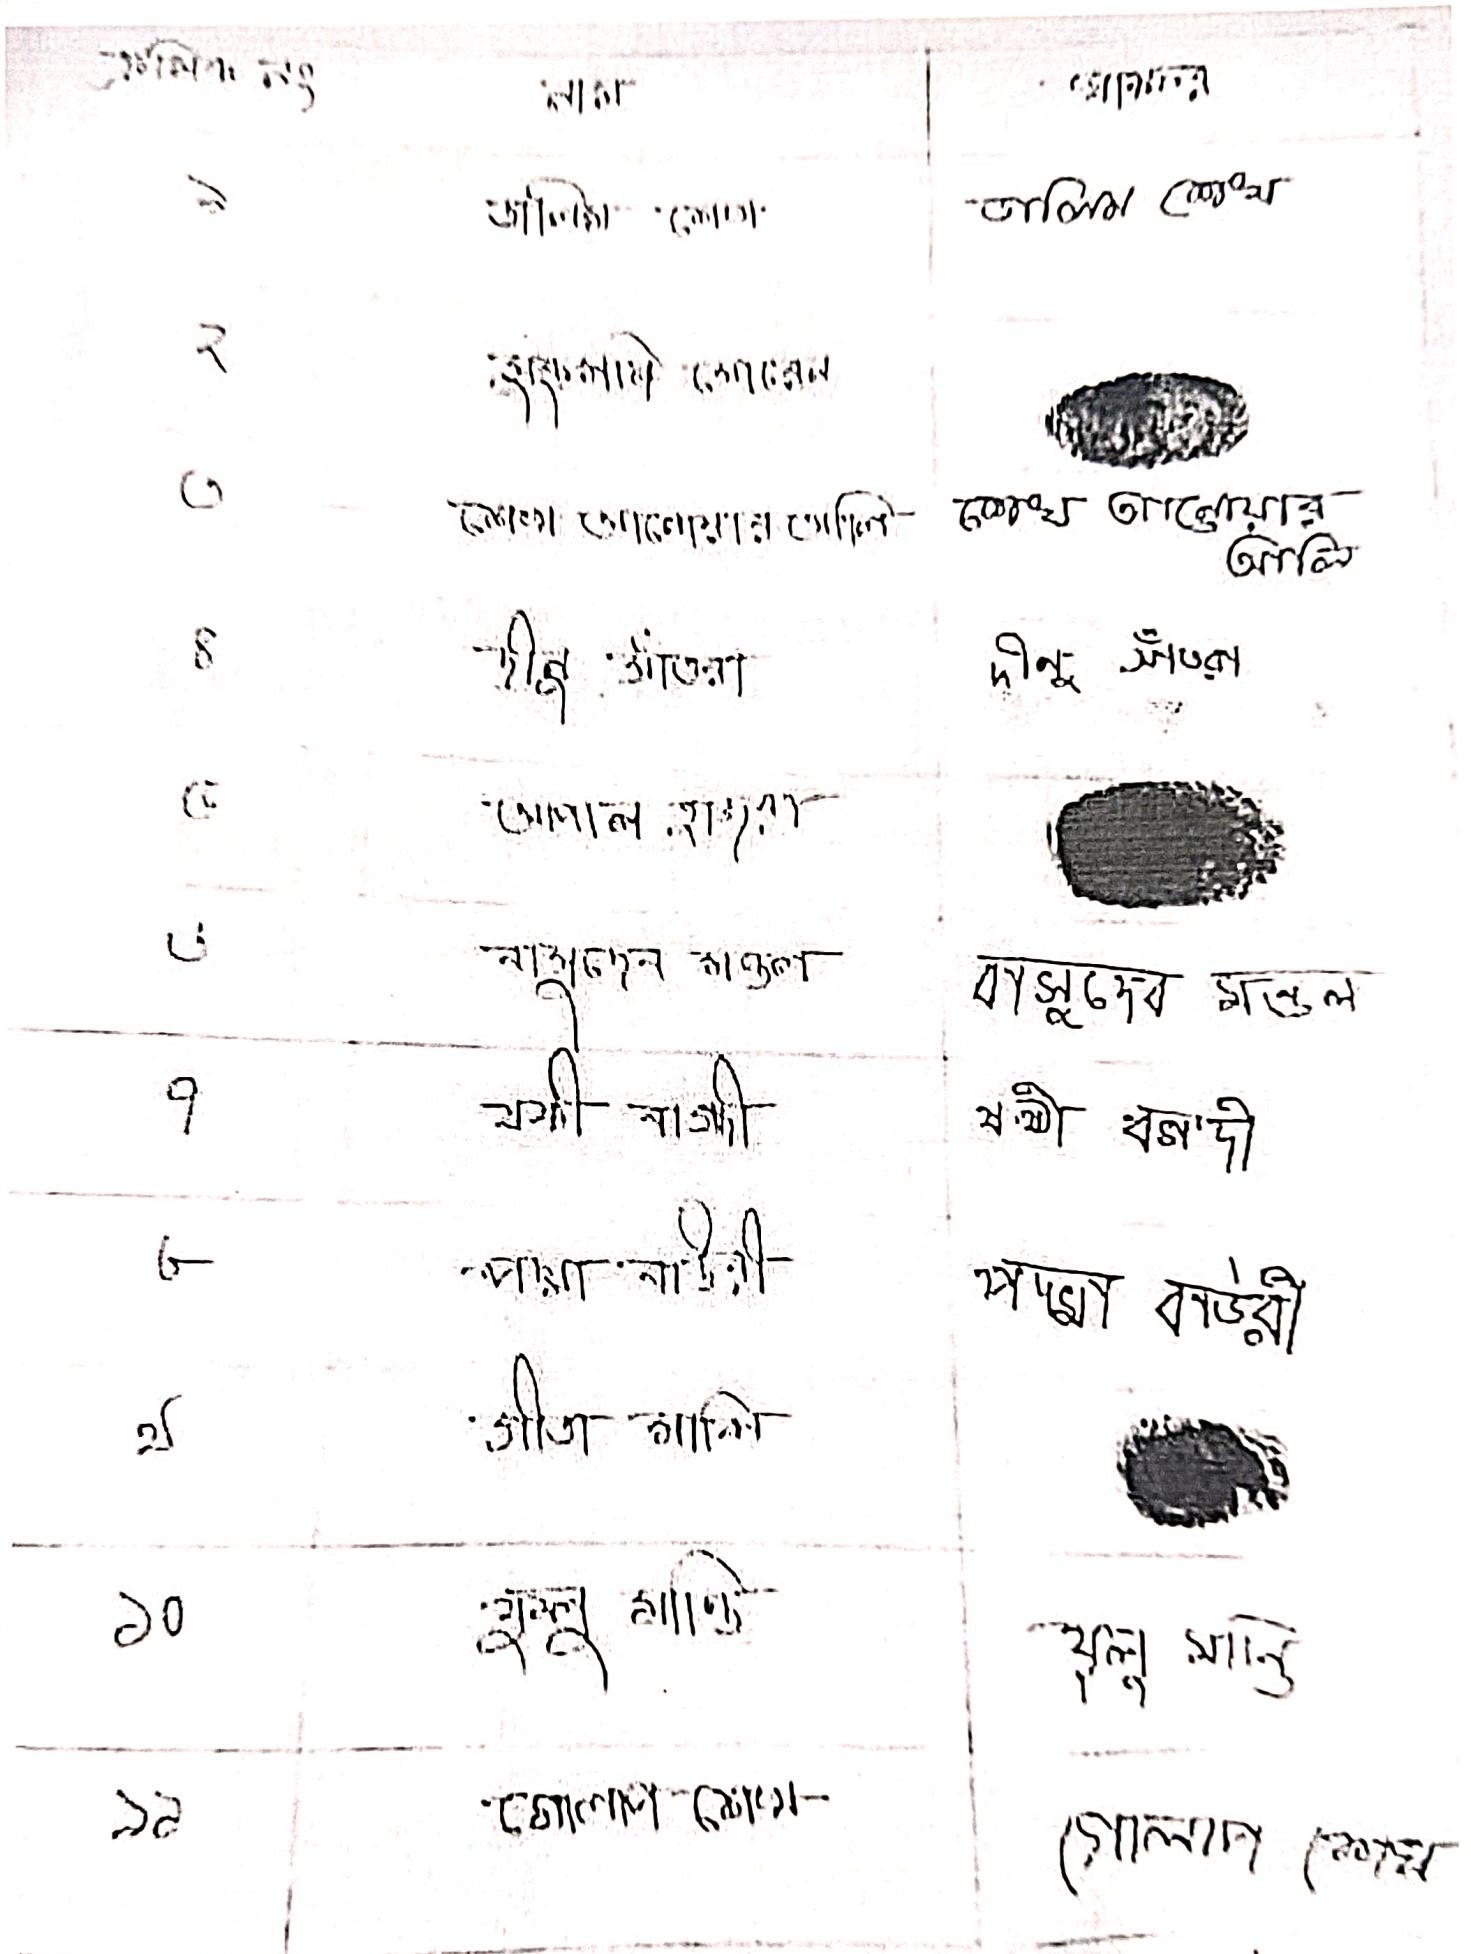 ক্রমিক নং নাম স্বাক্ষর
১ ডালিম শেখ ডালিম শেখ
২ সোরেন
৩ শেখ আনোয়ার আলি শেখ আনোয়ার
আলি
৪ দীনু সাঁতরা দীনু সাঁতরা
৫ গোপাল হাজরা
৬ বাসুদেব মণ্ডল বাসুদেব মন্ডল
৭ ষষ্ঠী বাগ্দী ষষ্ঠী
৮ পদ্মা বাউরী পদ্মা বাউরী
৯ গীতা মাঝি
১০ খুলু মাণ্ডি খুলু মান্ডি
১১ গোলাপ শেখ গোলাপ শেখ